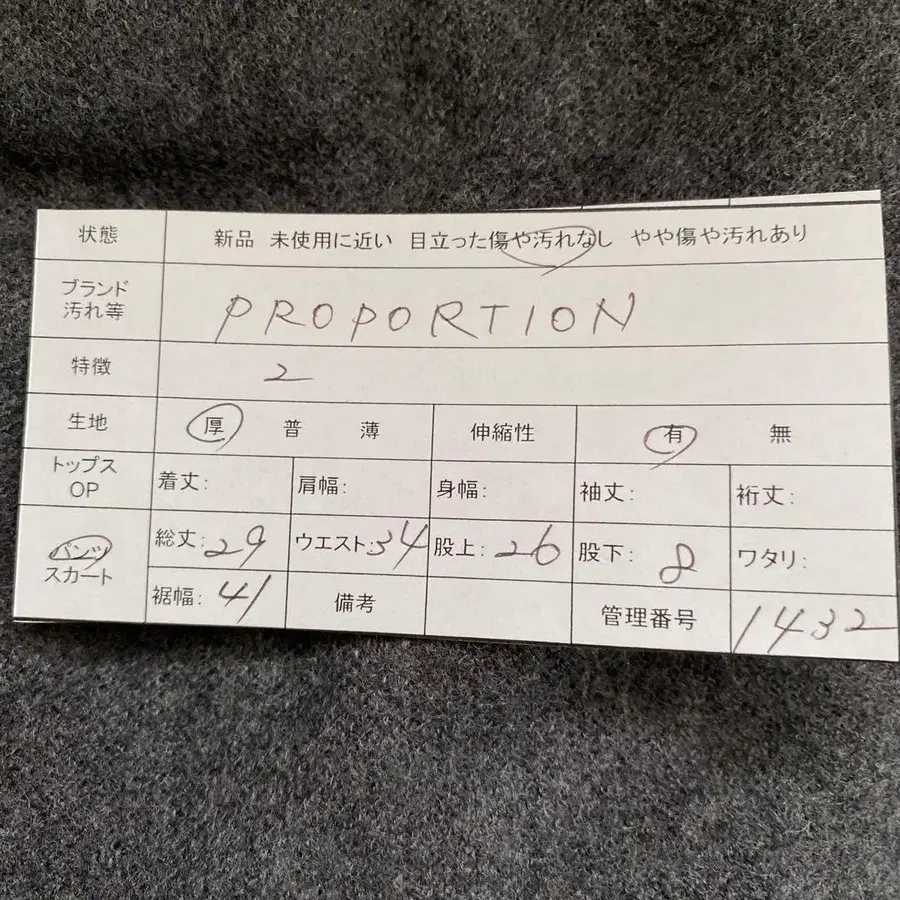 状態 新品 未使用に近い 目立った傷や汚れなし やや傷や汚れあり
ブランド
汚れ等
PROPORTION
特徴 2
生地 厚 普 薄 伸縮性 有 無
トップス
OP
着丈: 肩幅: 身幅: 袖丈: 裄丈:
パンツ
スカート
総丈: 29 ウエスト: 34 股上: 26 股下: 8 ワタリ:
裾幅: 41 備考 管理番号 1432